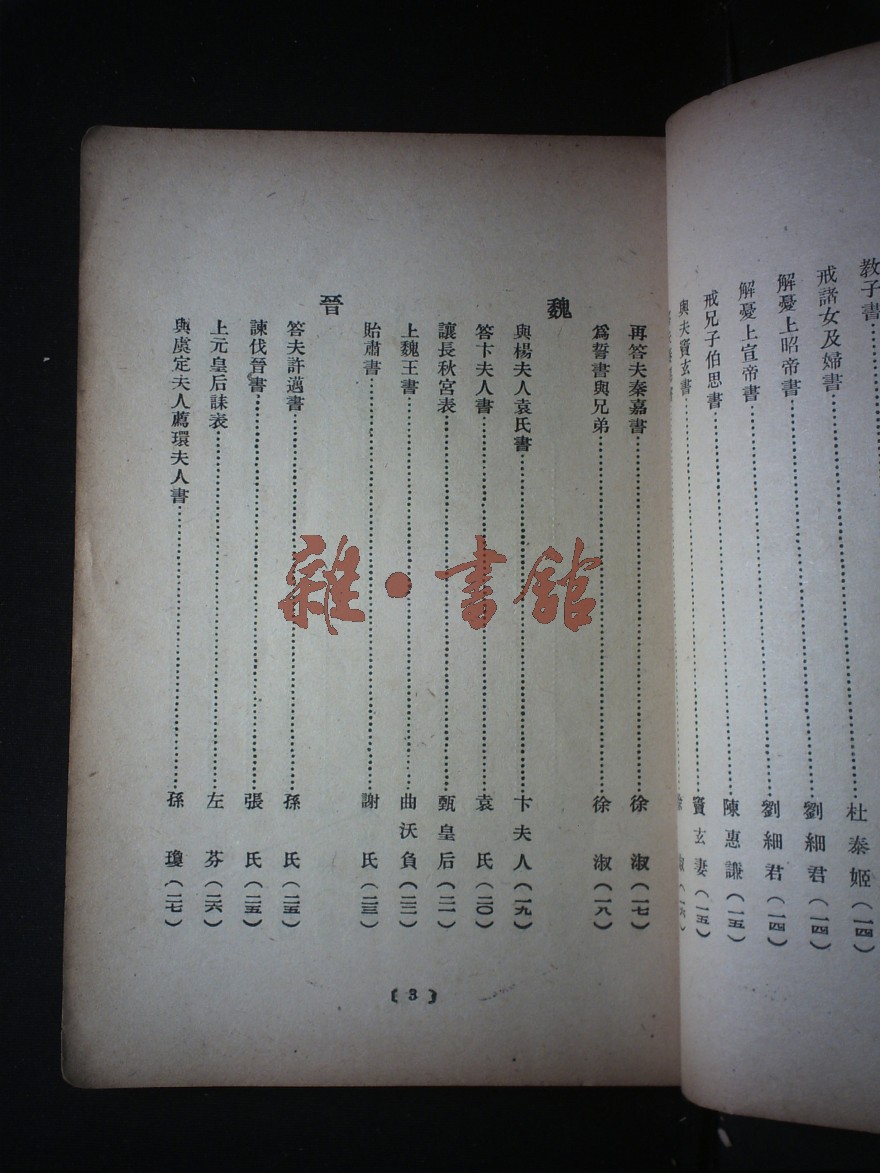 教子書 杜泰姬(一四)
戒諸女及婦書
解憂上昭帝書 劉細君(一四)
解憂上宣帝書 劉細君(一四)
戒兄子伯思書 陳惠謙(一五)
與夫竇玄書 竇玄妻(一五)
再答夫秦嘉書 徐淑(一七)
爲誓書與兄弟 徐淑(一八)
魏
與楊夫人袁氏書 卞夫人(一九)
答卞夫人書 袁氏(二〇)
讓長秋宮表 甄皇后(二一)
上魏王書 曲沃負(二二)
貽肅書 謝氏(二三)
晉
答夫許邁書 孫氏(二五)
諫伐晉書 張氏(二五)
上元皇后誄表 左芬(二六)
與虞定夫人薦環夫人書 孫瓊(二七)
〔3〕
雜·書館